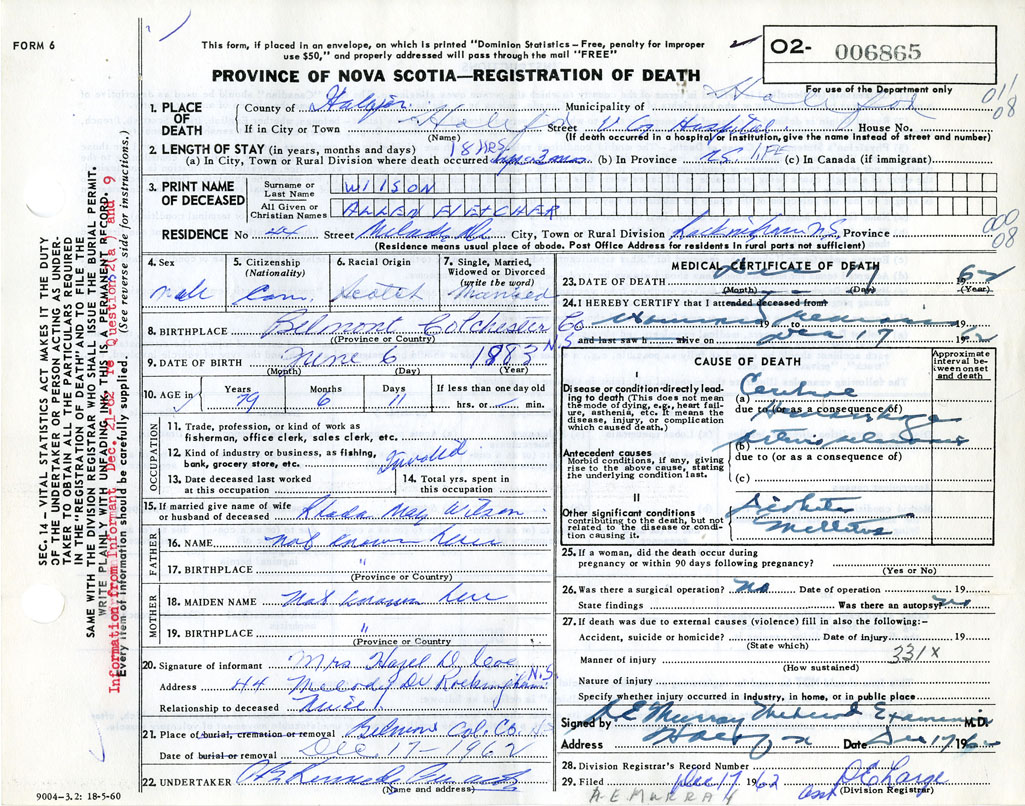 FORM 6
This form, if placed in an envelope, on which is printed "Dominion Statistics – Free, penalty for improper
use $50," and properly addressed will pass through the mail "FREE"
O2- 006865
PROVINCE OF NOVA SCOTIA—REGISTRATION OF DEATH
For use of the Department only
011
08
1. PLACE OF DEATH
County of Halifax Municipality of Halifax
If in City or Town Halifax Street V G Hospital House No.
(Name) (If death occurred in a hospital or institution, give the name instead of street and number)
2. LENGTH OF STAY (in years, months and days) 18 HRS
(a) In City, Town or Rural Division where death occurred (b) In Province N.S. LIFE (c) In Canada (if immigrant)
3. PRINT NAME OF DECEASED
Surname or Last Name WILSON
All Given or Christian Names ALLEN FLETCHER
RESIDENCE No Street Melody Dr City, Town or Rural Division Rockingham N.S. Province
(Residence means usual place of abode. Post Office Address for residents in rural parts not sufficient)
000
08
4. Sex Male
5. Citizenship (Nationality) Can.
6. Racial Origin Scotch
7. Single, Married, Widowed or Divorced (write the word) Married
8. BIRTHPLACE Belmont Colchester Co N.S
(Province or Country)
9. DATE OF BIRTH June 6 1883
(Month) (Day) (Year)
10. AGE in Years 79 Months 6 Days 11 If less than one day old hrs. or min.
OCCUPATION
11. Trade, profession, or kind of work as fisherman, office clerk, sales clerk, etc.
12. Kind of industry or business, as fishing, bank, grocery store, etc. Invalid
13. Date deceased last worked at this occupation
14. Total yrs. spent in this occupation
15. If married give name of wife or husband of deceased May Wilson
FATHER
16. NAME Not known here
17. BIRTHPLACE "
(Province or Country)
MOTHER
18. MAIDEN NAME Not known here
19. BIRTHPLACE "
(Province or Country)
20. Signature of informant Mrs Hazel D.
Address 44 Melody Dr Rockingham N.S.
Relationship to deceased Niece
21. Place of burial, cremation or removal Belmont Col. Co. NS
Date of burial or removal Dec. 17-1962
22. UNDERTAKER
(Name and address)
9004-3.2: 18-5-60
MEDICAL CERTIFICATE OF DEATH
23. DATE OF DEATH Dec 17 62
(Month) (Day) (Year)
24. I HEREBY CERTIFY that I attended deceased from
19 to 19
and last saw h alive on Dec 17 1962
CAUSE OF DEATH
Approximate interval between onset and death
I
Disease or condition directly leading to death (This does not mean the mode of dying, e.g., heart failure, asthenia, etc. It means the disease, injury, or complication which caused death.)
(a) Cerebral
due to (or as a consequence of) Hemorrhage
Antecedent causes
Morbid conditions, if any, giving rise to the above cause, stating the underlying condition last.
(b)
due to (or as a consequence of)
(c)
II
Other significant conditions contributing to the death, but not related to the disease or condition causing it. Diabetes Mellitus
25. If a woman, did the death occur during pregnancy or within 90 days following pregnancy?
(Yes or No)
26. Was there a surgical operation? no Date of operation 19
State findings Was there an autopsy? no
27. If death was due to external causes (violence) fill in also the following:-
Accident, suicide or homicide? Date of injury 19
(State which)
331X
Manner of injury
(How sustained)
Nature of injury
Specify whether injury occurred in industry, in home, or in public place
Signed by A E Murray Medical Examiner M.D.
Address Halifax Date Dec 17 1962
28. Division Registrar's Record Number
29. Filed Dec 17 1962
(Division Registrar)
A.E. MURRAY
SEC. 14 – VITAL STATISTICS ACT MAKES IT THE DUTY
OF THE UNDERTAKER OR PERSON ACTING AS UNDER-
TAKER TO OBTAIN ALL THE PARTICULARS REQUIRED
IN THE "REGISTRATION OF DEATH" AND TO FILE THE
SAME WITH THE DIVISION REGISTRAR WHO SHALL ISSUE THE BURIAL PERMIT.
WRITE PLAINLY WITH UNFADING INK. THIS IS A PERMANENT RECORD.
Information from Informant Dec. 21-62 re Questions 2(a) and 9
Every item of information should be carefully supplied. (See reverse side for instructions.)